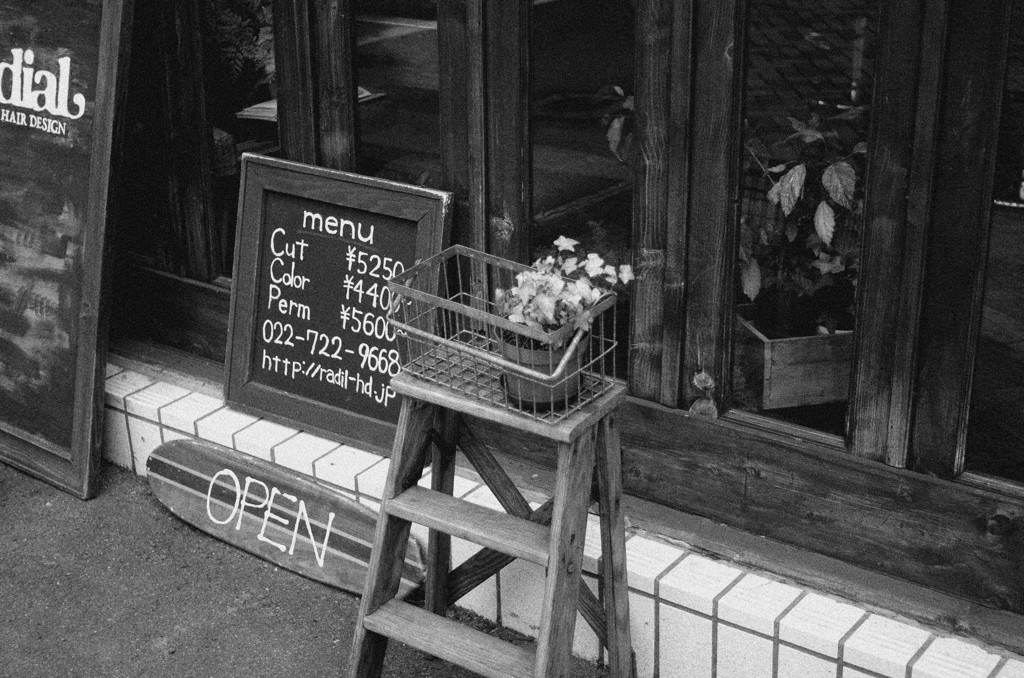 dial
HAIR DESIGN
menu
Cut ¥5250
Color ¥4400
Perm ¥5600~
022-722-9668
http://radil-hd.jp
OPEN